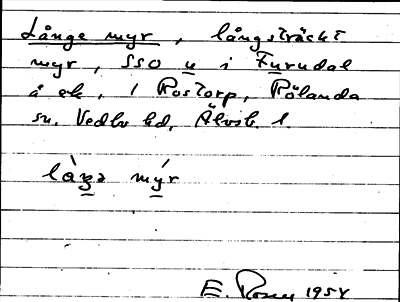 Långe myr, långsträckt
myr, SSO u i Furudal
å ek. 1 Rostorp, Rölanda
sn. Vedbo hd, Älvsb. l.
là̀ŋə mýr
E. Rosen 1954